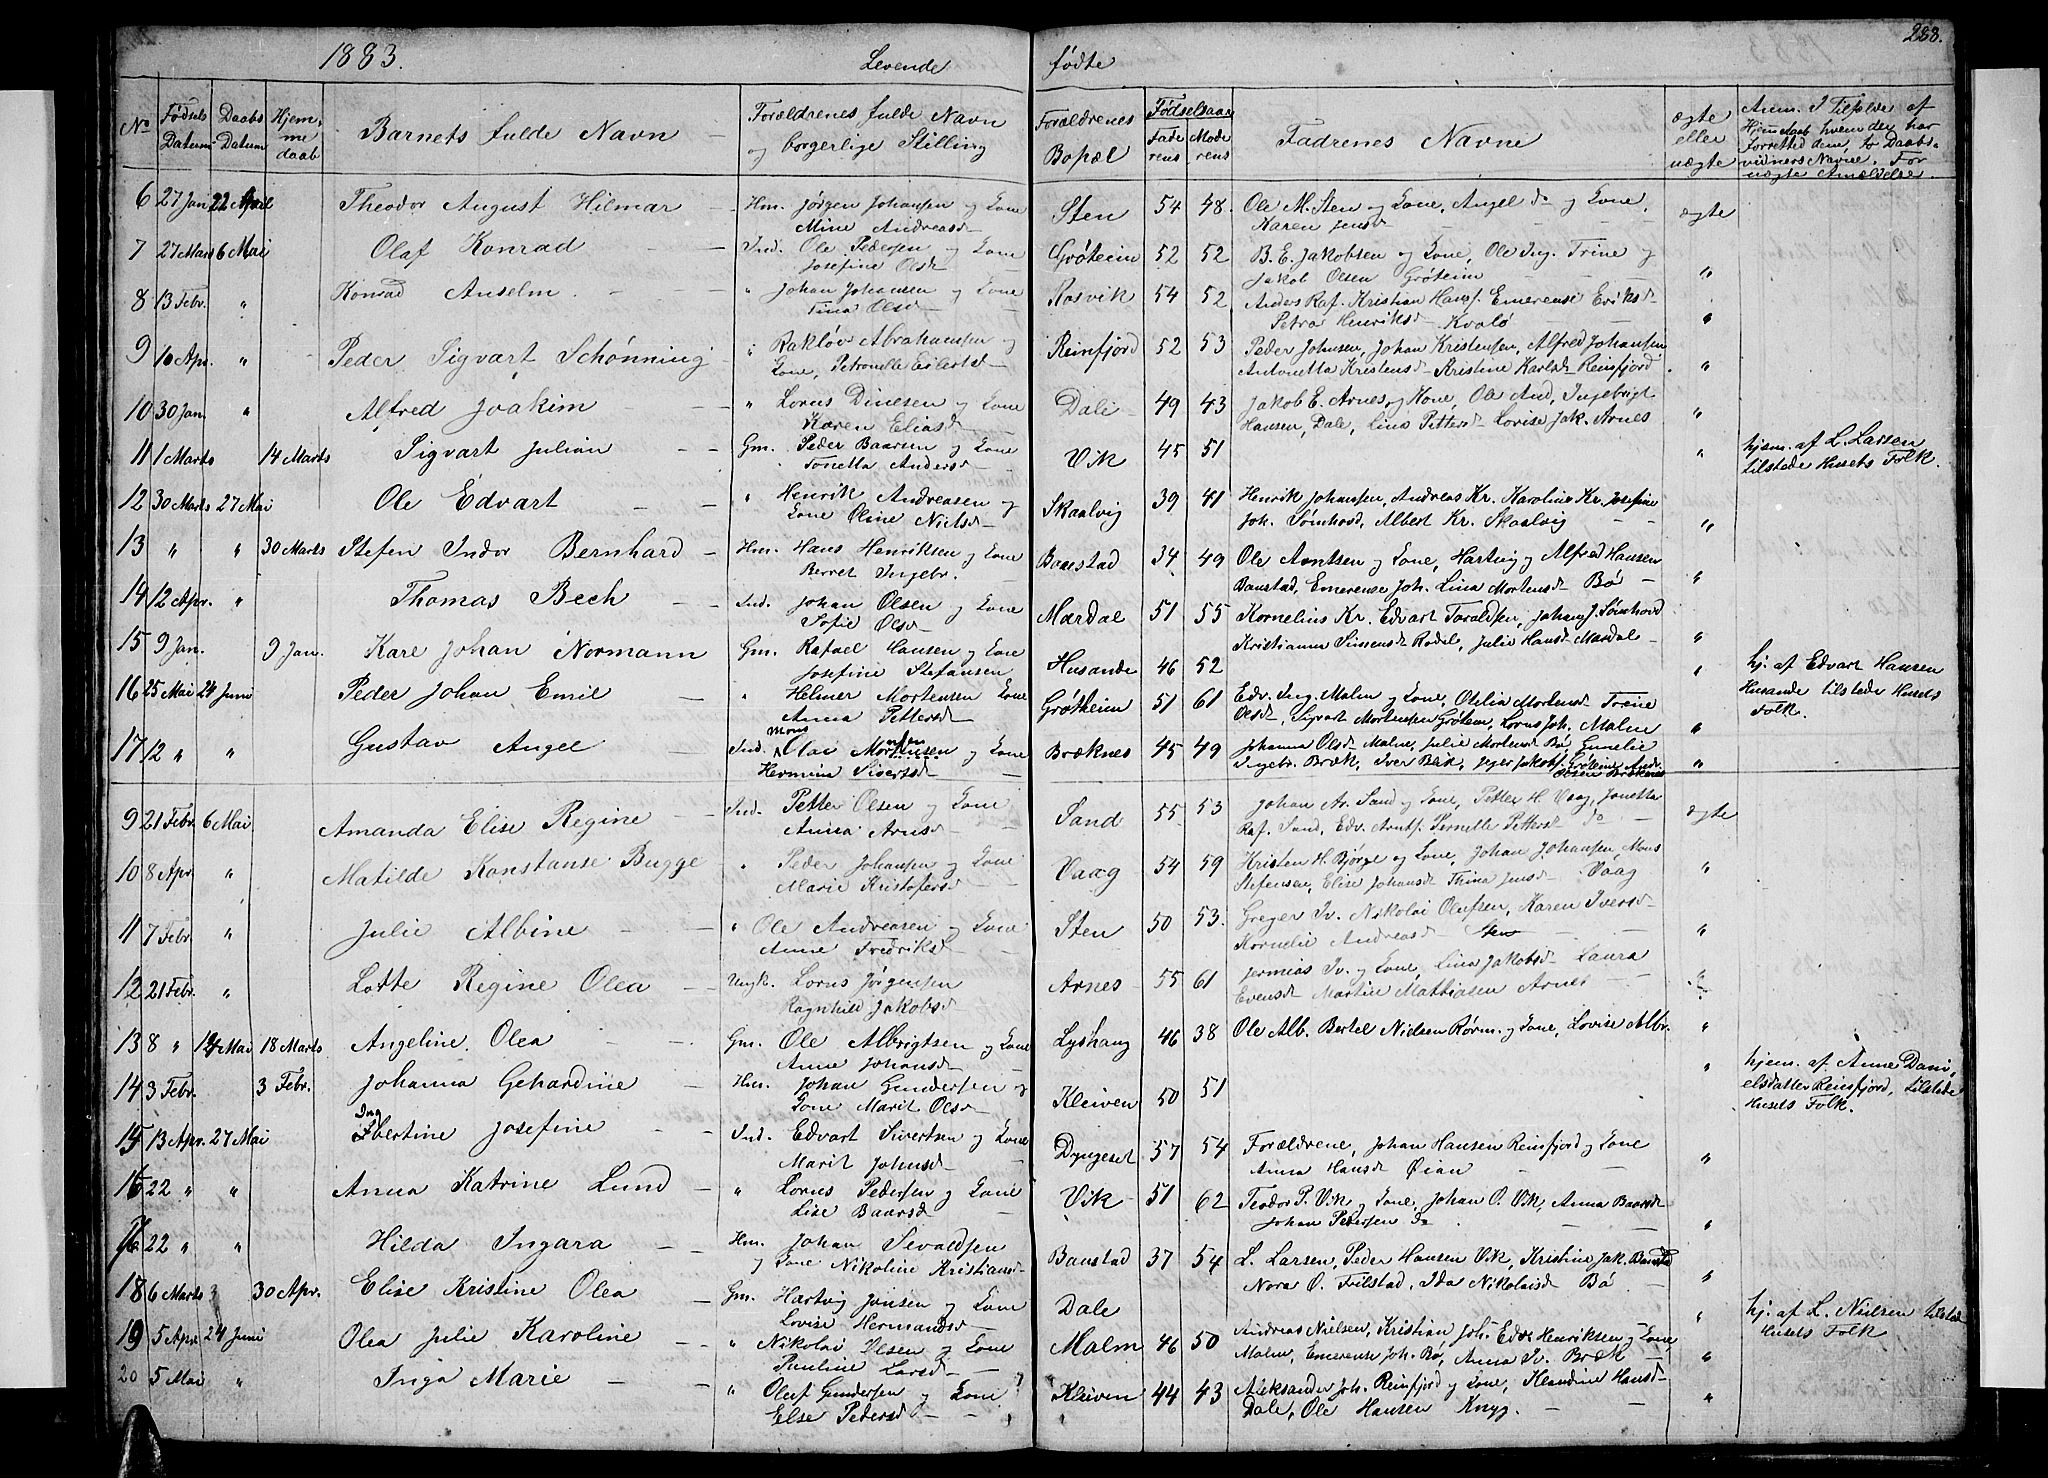 1883. Levende fødte 288.
No Fødsels Datum Daabs Datum Hjemmedaab Barnets fulde Navn Forældrenes fulde Navn og borgerlige Stilling Forældrenes Bopæl Fødselsaar Faderens Moderens Fadrenes Navne ægte eller uægte Anm. I Tilfælde af Hjemdaab hvem der har forrettet den, to Daabsvidners Navne. For uægte Anmeldelse.
6 27 Jan 22 April Theodor August Hilmar Hm. Jørgen Johansen og Kone Sten 54 48 Ole M. Sten og Kone, Angel do og Kone, ægte
Mine Andreasd Karen Jensd
7 27 Mars 6 Mai Olaf Konrad Ind. Ole Pedersen og Kone Grøteim 52 52 B. E. Jakobsen og Kone, Ole Ing. Trine og "
Josefine Olsd Jakob Olsen Grøteim
8 13 Febr. " Konrad Anselm " Johan Johansen og Kone Rosvik 54 52 Anders Raf. Kristian Hansf. Emerense Eriksd "
Tina Olsd Petra Henriksd Kvalø
9 10 Apr. " Peder Sigvart Schønning " Rakløv Abrahamsen og Reinfjord 52 53 Peder Johnsen, Johan Kristensen, Alfred Johansen "
Kone, Petronelle Eilertsd Antonetta Kristensd Kristine Karlsd Reinfjord
10 30 Jan. " Alfred Joakim " Lorns Dinesen og Kone Dale 49 43 Jakob E. Arnes og Kone, Ole And, Ingebrigt "
Karen Eliasd Hansen, Dale, Lina Pettersd Lovise Jak. Arnes
11 1 Marts 14 Marts Sigvart Julian Gm. Peder Baarsen og Kone Vik 45 51 " hjem. af L. Larsen
Tonetta Andersd tilstede Husets Folk.
12 30 Marts 27 Mai Ole Edvart " Henrik Andreasen og Skaalvig 39 41 Henrik Johansen, Andreas Kr. Karoline Kr. Josefine "
Kone Oline Nielsd Joh. Sømhovd, Albert Kr. Skaalvig
13 " " 30 Marts Stefen Indor Bernhard Hm. Hans Henriksen og Kone Baastad 34 49 Ole Arntsen og Kone, Hartvig og Alfred Hansen "
Berret Ingebr. Baastad, Emerense Joh. Lina Mortensd Bø
14 12 Apr. " Thomas Bech Ind. Johan Olsen og Kone Mardal 51 55 Kornelius Kr. Edvart Taraldsen, Johans J. Sømhovd "
Sofie Olsd Kristianna Simensd Rodal, Julie Hansd Mardal
15 9 Jan. 9 Jan. Karl Johan Normann Gm. Rafael Hansen og Kone Husande 46 52 " hj. af Edvart Hansen
Josefine Stefansen Husande tilstede Husets
Folk.
16 25 Mai 24 Juni Peder Johan Emil " Helmer Mortensen Kone Grøtheim 51 61 Edv. Ing. Malm og Kone, Otelia Mortensd Trine "
Anna Pettersd Olsd, Sigvart Mortensen Grøteim, Lorns Joh. Malm
17 12 " " Gustav Angel Ind. Mons Mortensen og Kone Bræknes 45 49 Johanna Olsd Malm, Julie Mortensd Bø, Gunelie "
Hermina Sivertsd Ingebr. Bræk, Iver Bræk, Jeger Jakobs. Grøteim Andr. Olsen Bræknes
9 21 Febr. 6 Mai Amanda Elise Regine Ind. Petter Olsen og Kone Sand 55 53 Johan Ar. Sand og Kone, Petter H. Vaag, Jonetta ægte
Anna Arnsd Raf. Sand, Edv. Arntf. Pernille Pettersd do
10 8 Apr. " Matilde Konstanse Bugge " Peder Johansen og Kone Vaag 54 59 Kristen H. Bjørge og Kone, Johan Johansen, Mons "
Marie Kristofersd Stefensen, Elise Johansd Thina Jensd Vaag
11 7 Febr. " Julie Albine " Ole Andreasen og Kone Sten 50 53. Greger Iv. Nikolai Olufsen, Karen Iversd "
Anne Fredriksd Kornelie Andreasd Sten
12 21 Febr. " Lotte Regine Olea Ungk. Lorns Jørgensen Arnes 55 61 Jermias Iv. og Kone, Lina Jakobsd Laura "
Ragnhild Jakobsd Evensd Martin Mathiasen Arnes
13 8 " 14 Mai 18 Marts Angeline Olea Gm. Ole Albrigtsen og Kone Lyshaug 46 38 Ole Alb. Bertel Nielsen Rørm. og Kone, Lovise Albr. "
Anne Johansd
14 3 Febr. 3 Febr. Johanna Gehardine Hm. Johan Gundersen og Kleiven 50 51 " hjem. af Anne Dani,
Kone Marit Olsd elsdatter Reinsfjord, tilstede
Husets Folk.
15 13 Apr. 27 Mai Ingbertine Josefine Ind. Edvart Sivertsen og Kone Dyngeset 57 54 Forældrene, Johan Hansen Reinfjord og Kone "
Marit Johnsd Anna Hansd Øian
16 22 " " Anna Katrine Lund " Lorns Pedersen og Kone Vik 51 62 Teodor P. Vik og Kone, Johan O. Vik, Anna Baarsd "
Lise Baarsd Johan Petersen do
17 22 " " Hilda Ingara Hm. Johan Sevaldsen Baastad 37 54 L. Larsen, Peder Hansen Vik, Kristine Jak. Baastad "
og Kone Nikoline Kristiansd Nora O. Filstad, Ida Nikolaisd Bø
18 6 Marts 30 Apr. Elise Kristine Olea Gm. Hartvig Jonsen og Kone Dale " hj. af L. Nielsen tilstede
Lovise Hermansd Husets Folk
19 5 Apr 24 Juni Olea Julie Karoline " Nikolai Olsen og Kone Malm 46 50 Andreas Nielsen, Kristian Joh. Edv. Henriksen og Kone "
Pauline Larsd Malm, Emerense Joh. Bø, Anna Iv. Bræk
20 5 Mai " Inga Marie " Oluf Gundersen og Kone Kleiven 44 43 Aleksander Joh. Reinfjord og Kone, Klaudine Hansd "
Else Pedersd Dale, Ole Hansen Knyg.